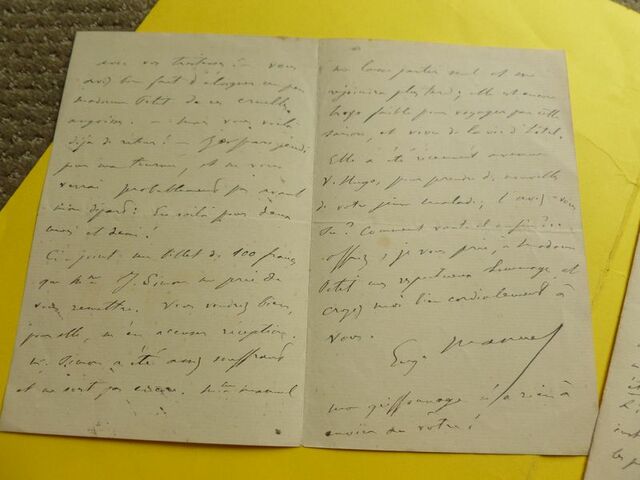 avec vos tristesses ! — vous
avez bien fait d'éloigner un peu
madame Petit de ces cruelles
angoisses. — mais vous voilà
déjà de retour ! — Je pars jeudi
pour ma tournée, et ne vous
verrai probablement pas avant
mon départ : En voilà pour deux
mois et demi !
Ci-joint un billet de 100 francs
que Mme J. Simon me prie de
vous remettre. Vous voudrez bien,
pour elle, m'en accuser réception.
M. Simon a été assez souffrant
et ne sort pas encore. Mme Manuel
me laisse partir seul et me
rejoindra plus tard ; elle est encore
trop faible pour voyager par cette
saison, et vivre de la vie d'hôtel.
Elle a été récemment avenue
V. Hugo, pour prendre des nouvelles
de votre jeune malade ; l'avez-vous
su ? Comment va
offrez, je vous prie, à madame
Petit mes respectueux hommages et
croyez moi bien cordialement à
vous.
Eug. Manuel
mon griffonnage n'a rien à
envier au vôtre !